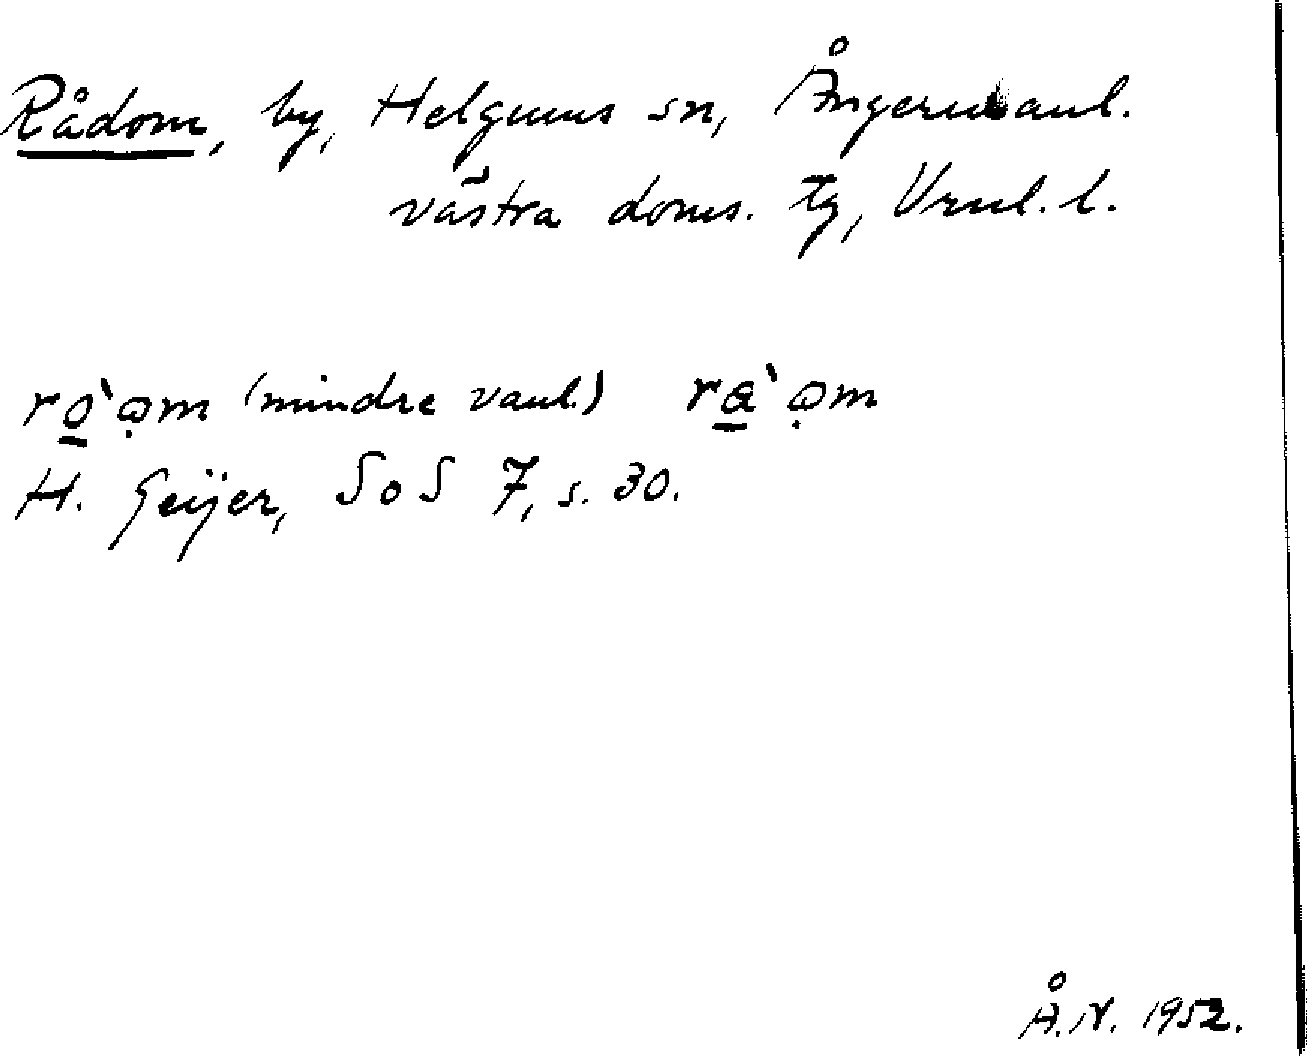 Rådom, by, Helgums sn, Ångermanl.
västra doms. tg, Vrnl. l.
ro̠`ǫm (mindre vanl.) ra̠`ǫm
H. Geijer, SoS 7, s. 30.
Å.N. 1952.